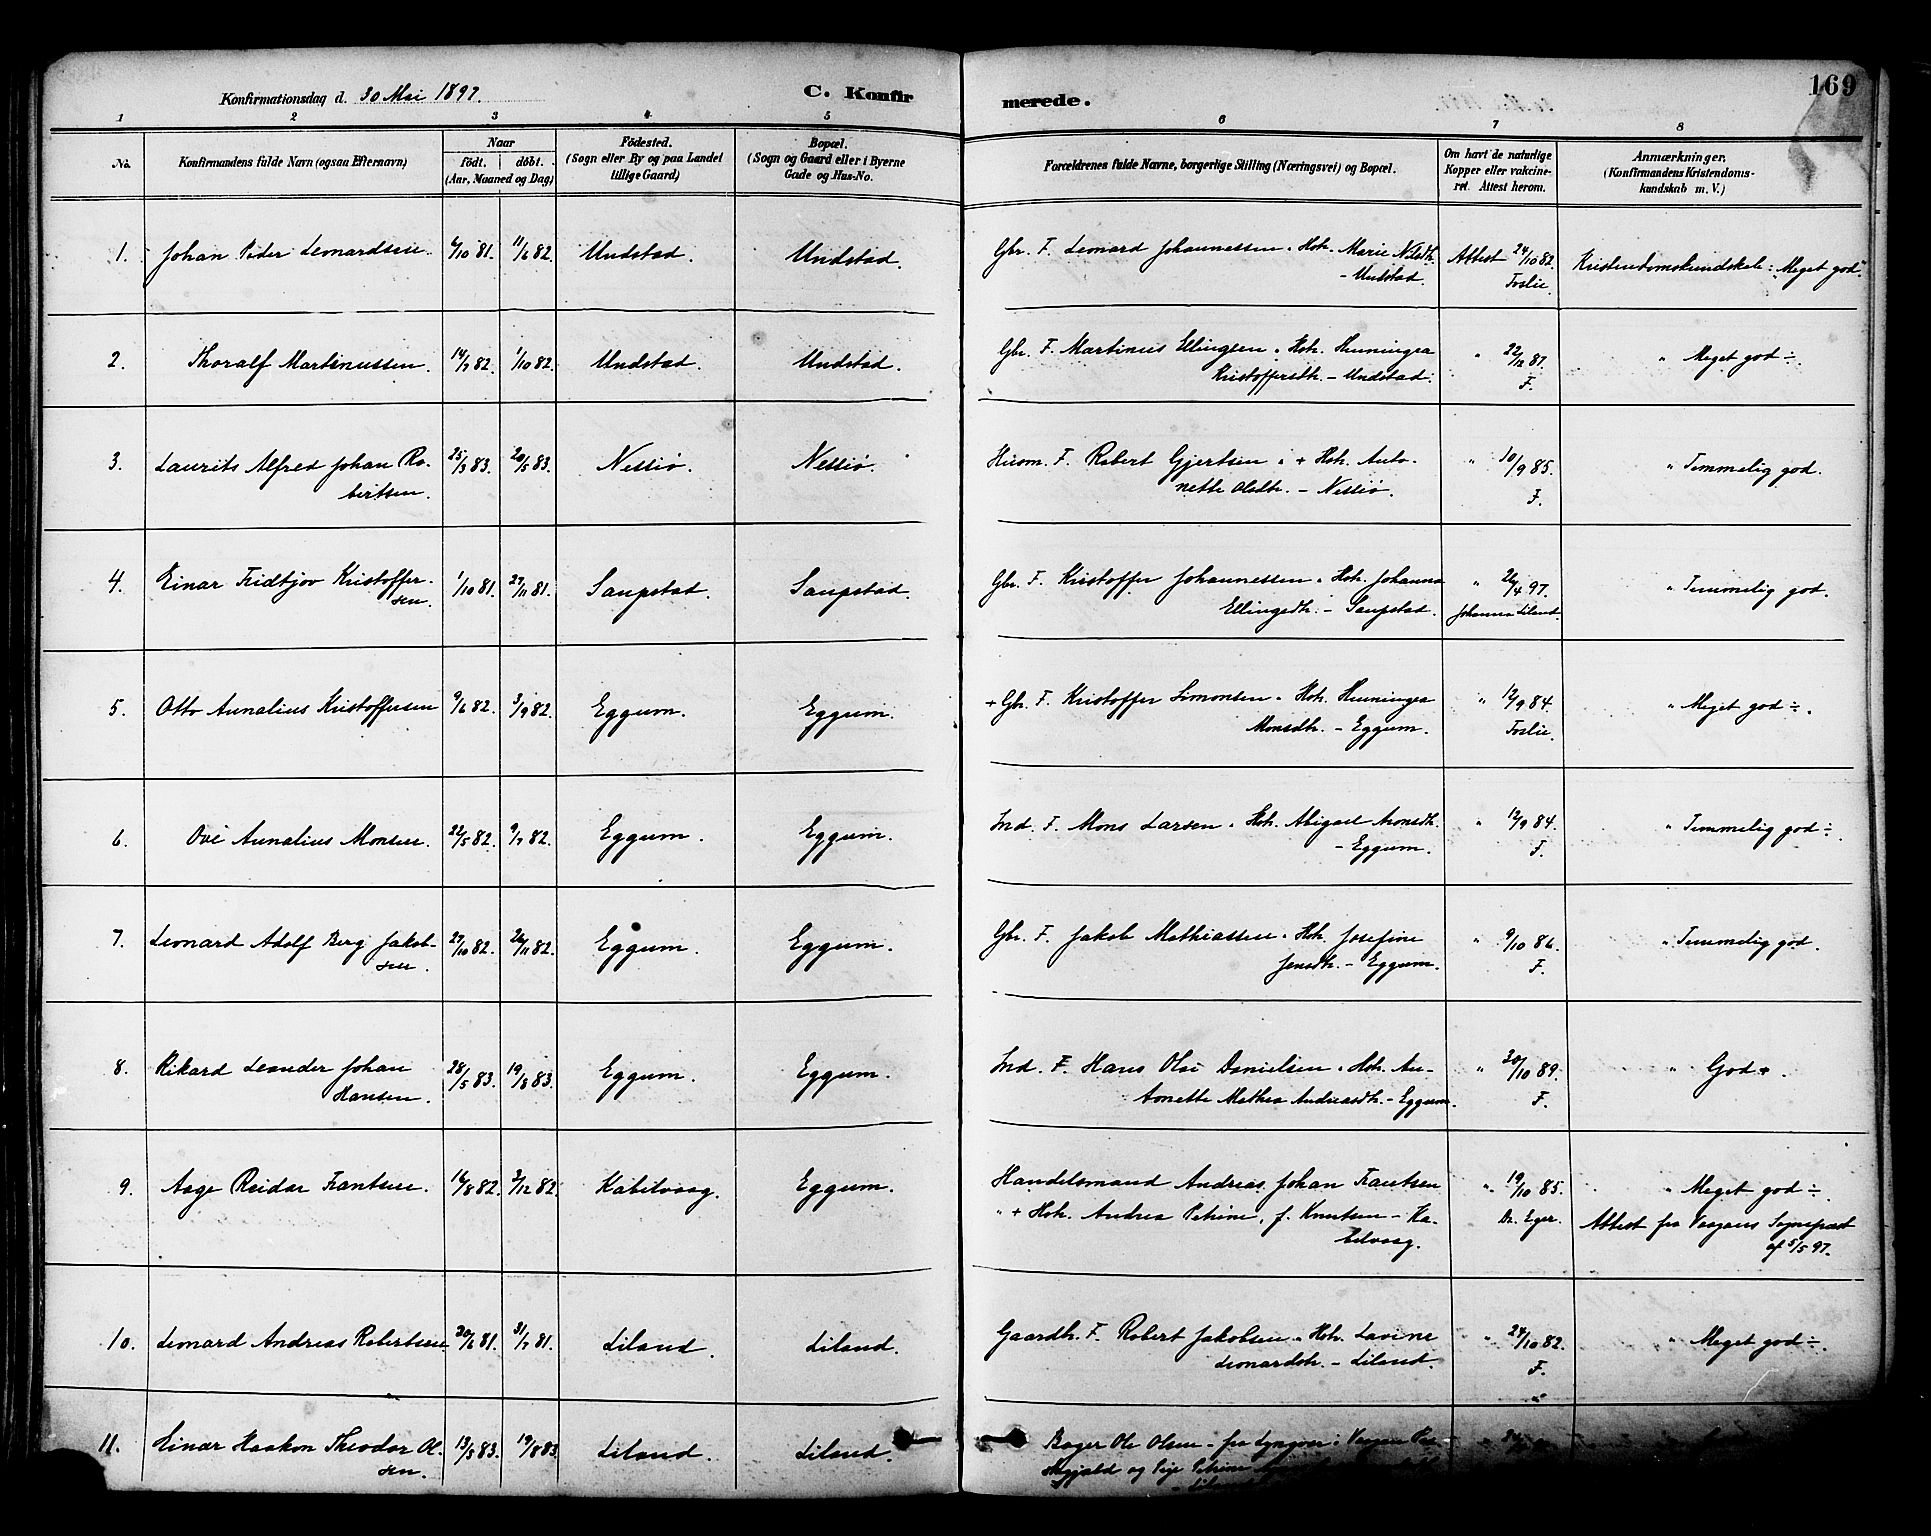 169
Konfirmationsdag d. 30 Mai 1897.
C. Konfirmerede.
1 2 3 4 5 6 7 8
No.
Konfirmandens fulde Navn (ogsaa Efternavn)
Naar
födt. döbt.
(Aar, Maaned og Dag)
Födested.
(Sogn eller By og paa Landet
tillige Gaard)
Bopæl.
(Sogn og Gaard eller i Byerne
Gade og Hus-No.
Forældrenes fulde Navne, borgerlige Stilling (Næringsvei) og Bopæl.
Om havt de naturlige
Kopper eller vakcine-
ret. Attest herom.
Anmærkninger.
(Konfirmandens Kristendoms-
kundskab m. V.)
1. Johan Peder Leonardsen 6/10 81. 11/6 82. Undstad. Undstad. Gbr. F. Leonard Johannessen " Hstr. Marie Nilsdtr. Attest 24/10 82. Kristendomskundskab: "Meget god".
- Undstad. Foslie.
2. Thoralf Martinussen. 14/7 82. 1/10 82. Undstad. Undstad. Gbr. F. Martinus Ellingsen " Hstr. Henningea " 22/12 87. " Meget god ÷.
Kristoffersdtr. - Undstad. F.
3. Laurits Alfred Johan Ro- 25/3 83. 20/5 83. Nesliø. Nesliø. Husm. F. Robert Gjertsen " + Hstr. Anto- " 10/9 85. " Temmelig god.
bertsen. nette Olsdtr. - Nesliø. F.
4. Einar Fridtjov Kristoffer- 1/10 81. 27/11 81. Saupstad. Saupstad. Gbr. F. Kristoffer Johannessen " Hstr. Johanna " 26/4 97. " Temmelig god.
sen. Ellingsdtr. - Saupstad. Johanna Liland.
5. Otto Annalius Kristoffersen 9/6 82. 3/9 82. Eggum. Eggum. + Gbr. F. Kristoffer Simonsen " Hstr. Henningea " 12/9 84. " Meget god ÷.
Monsdtr. - Eggum. Foslie.
6. Ove Annalius Monsen. 22/5 82. 9/7 82. Eggum. Eggum. Ind. F. Mons Larsen " Hstr. Abigael Aronsdtr. " 12/9 84. " Temmelig god ÷.
- Eggum. F.
7. Leonard Adolf Berg Jakob- 27/10 82. 26/11 82. Eggum. Eggum. Gbr. F. Jakob Mathiassen " Hstr. Josefine " 9/10 86. " Temmelig god.
sen. Jensdtr. - Eggum. F.
8. Rikard Leander Johan 28/5 83. 19/8 83. Eggum. Eggum. Ind. F. Hans Olai Danielsen " Hstr. An- " 30/10 89. " God +.
Hansen. tonette Mathea Andreasdtr. - Eggum. F.
9. Aage Reidar Frantsen. 16/8 82. 3/12 82. Kabelvaag. Eggum. Handelsmand Andreas Johan Frantsen " 19/10 85. " Meget god ÷.
" + Hstr. Andrea Petrine, f. Knutsen - Ka- Dr. Eger. Attest fra Vaagans Sognepræst
belvaag. af 5/5 97.
10. Leonard Andreas Robertsen 20/6 81. 31/7 81. Liland. Liland. Gaardbr. F. Robert Jakobsen " Hstr. Lavine " 24/10 82. " Meget god ÷.
Leonardstr. - Liland. F.
11. Einar Haakon Theodor Ol- 13/3 83. 19/8 83. Liland. Liland. Bager Ole Olsen - fra Lyngvær i Vaagan Præ-
sen. stegjæld og Pige Petrine
- Liland